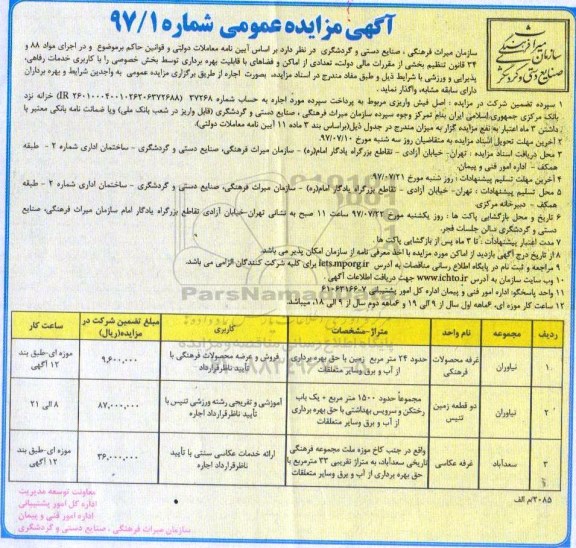 آگهی مزایده عمومی شماره ۹۷/۱
سازمان میراث فرهنگی
صنایع دستی و گردشگری
سازمان میراث فرهنگی ، صنایع دستی و گردشگری در نظر دارد بر اساس آیین نامه معاملات دولتی و قوانین حاکم برموضوع و در اجرای مواد ۸۸ و
۲۴ قانون تنظیم بخشی از مقررات مالی دولت، تعدادی از اماکن و فضاهای با قابلیت بهره برداری توسط بخش خصوصی را با کاربری خدمات رفاهی،
پذیرایی و ورزشی با شرایط ذیل و طبق مفاد مندرج در اسناد مزایده، بصورت اجاره از طریق برگزاری مزایده عمومی به واجدین شرایط و بهره برداران
دارای سابقه مشابه، واگذار نماید.
۱ سپرده تضمین شرکت در مزایده : اصل فیش واریزی مربوط به پرداخت سپرده مورد اجاره به حساب شماره ۳۷۲۶۸ (IR ۲۶۰۱۰۰۰۴۰۰۱۰۲۶۲۰۶۳۷۲۶۸۸) خزانه نزد
بانک مرکزی جمهوری اسلامی ایران بنام تمرکز وجوه سپرده سازمان میراث فرهنگی ، صنایع دستی و گردشگری (قابل واریز در شعب بانک ملی) ویا ضمانت نامه بانکی معتبر با
داشتن ۳ ماه اعتبار به نفع مزایده گزار به میزان مندرج در جدول ذیل(براساس بند ۳ ماده ۱۱ آیین نامه معاملات دولتی).
۲ آخرین مهلت تحویل اسناد مزایده به متقاضیان روز سه شنبه مورخ ۹۷/۰۷/۱۰.
۳ محل دریافت اسناد مزایده : تهران- خیابان آزادی - تقاطع بزرگراه یادگار امام(ره) - سازمان میراث فرهنگی، صنایع دستی و گردشگری - ساختمان اداری شماره ۲ - طبقه
همکف - اداره امور فنی و پیمان.
۴ آخرین مهلت تسلیم پیشنهادات : روز شنبه مورخ ۹۷/۰۷/۲۱
۵ محل تسلیم پیشنهادات : تهران- خیابان آزادی - تقاطع بزرگراه یادگار امام(ره) - سازمان میراث فرهنگی، صنایع دستی و گردشگری - ساختمان اداری شماره ۲ - طبقه
همکف - دبیرخانه مرکزی.
۶ تاریخ و محل بازگشایی پاکت ها : روز یکشنبه مورخ ۹۷/۰۷/۲۲ ساعت ۱۱ صبح به نشانی تهران-خیابان آزادی تقاطع بزرگراه یادگار امام سازمان میراث فرهنگی، صنایع
دستی و گردشگری سالن جلسات فجر.
۷ مدت اعتبار پیشنهادات : تا ۳ ماه پس از بازگشایی پاکت ها.
۸ از تاریخ درج آگهی بازدید از اماکن مورد مزایده با اخذ معرفی نامه از سازمان امکان پذیر می باشد.
۹ مراجعه و ثبت نام در پایگاه اطلاع رسانی مناقصات به آدرس iets.mporg.ir برای کلیه شرکت کنندگان الزامی می باشد.
۱۰ وب سایت سازمان به آدرس www.ichto.ir جهت دریافت اطلاعات آگهی.
۱۱ واحد پاسخگو: اداره امور فنی و پیمان اداره کل امور پشتیبانی
۱۲ ساعت کار موزه ای، ۶ماهه اول سال از ۹ الی ۱۹ و ۶ماهه دوم سال از ۹ الی ۱۸، میباشد.
ParsNamad
ردیف مجموعه نام واحد متراژ-مشخصات کاربری مبلغ تضمین شرکت در مزایده(ریال) ساعت کار
۱ نیاوران غرفه محصولات فرهنگی حدود ۲۴ متر مربع زمین با حق بهره برداری از آب و برق وسایر متعلقات فروش و عرضه محصولات فرهنگی با تأیید ناظرقرارداد ۹,۶۰۰,۰۰۰ موزه ای-طبق بند ۱۲ آگهی
۲ نیاوران دو قطعه زمین تنیس مجموعاً حدود ۱۵۰۰ متر مربع + یک باب رختکن و سرویس بهداشتی با حق بهره برداری از آب و برق وسایر متعلقات آموزشی و تفریحی رشته ورزشی تنیس با تأیید ناظرقرارداد اجاره ۸۷,۰۰۰,۰۰۰ ۸ الی ۲۱
۳ سعدآباد غرفه عکاسی واقع در جنب کاخ موزه ملت مجموعه فرهنگی تاریخی سعدآباد، به متراژ تقریبی ۳۳ مترمربع با حق بهره برداری از آب و برق وسایر متعلقات ارائه خدمات عکاسی سنتی با تأیید ناظرقرارداد اجاره ۳۶,۰۰۰,۰۰۰ موزه ای-طبق بند ۱۲ آگهی
۲۰۸۵/م الف
معاونت توسعه مدیریت
اداره کل امور پشتیبانی
اداره امور فنی و پیمان
سازمان میراث فرهنگی ، صنایع دستی و گردشگری